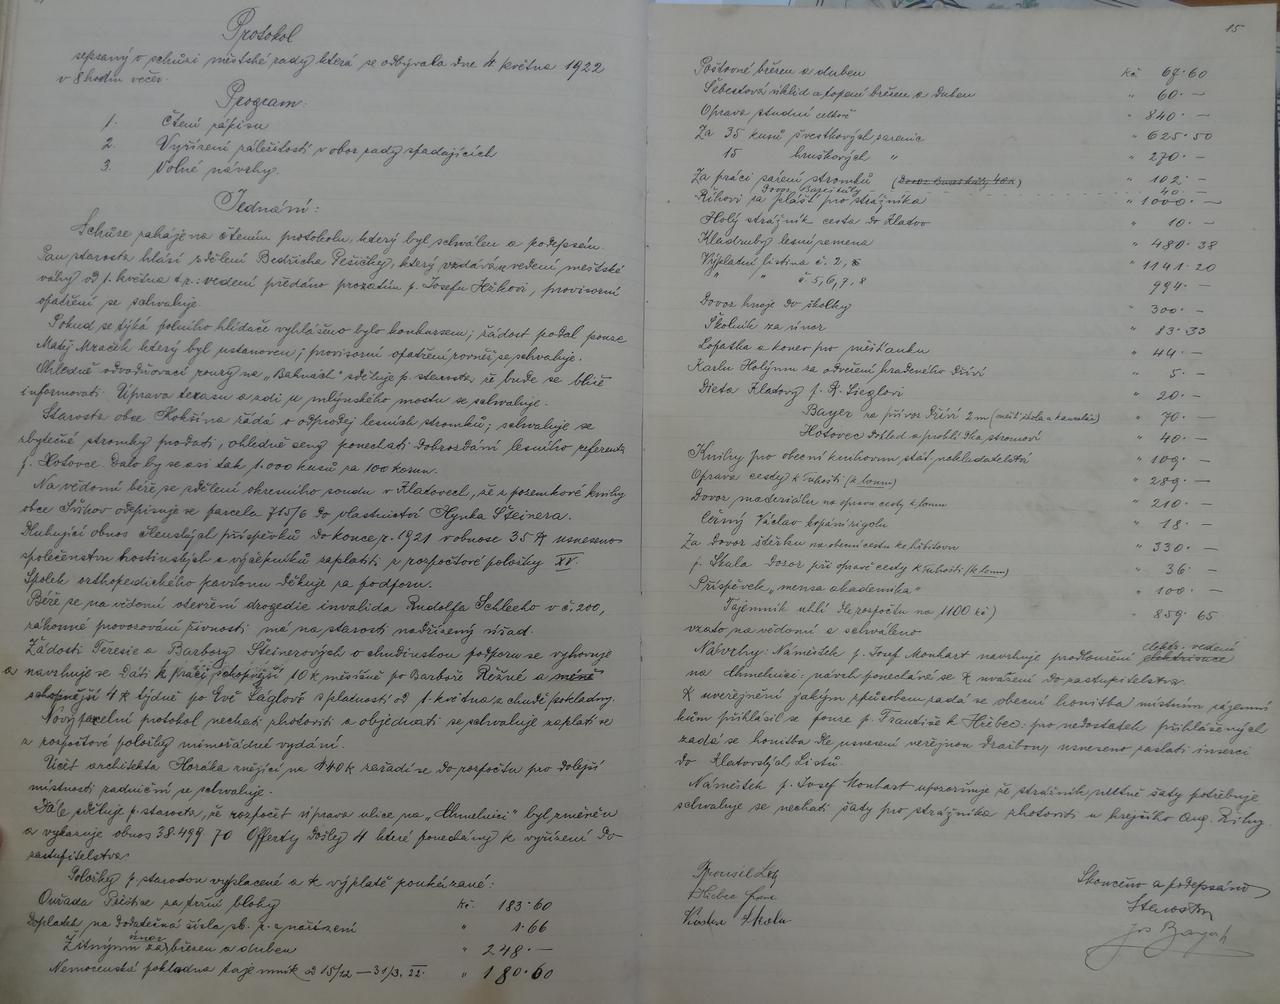 Protokol
sepsaný o schůzi městské rady která se odbývala dne 4. května 1922
v 8 hodin večer.
Program:
1. Čtení zápisu
2. Vyřízení záležitostí v obor rady spadajících
3. Volné návrhy.
Jednání:
Schůze zahájena čtením protokolu, který byl schválen a podepsán.
Pan starosta hlásí sdělení Bedřicha Pešičky, který vzdává se vedení městské
váhy od 1. května t.r.: vedení předáno prozatím p. Josefu Hříkovi, provisorní
opatření se schvaluje.
Pokud se týká polního hlídače vyhlášeno bylo konkursem; žádost podal pouze
Matěj Mraček který byl ustanoven; provisorní opatření rovněž se schvaluje.
Ohledně odvodňovací roury na „Bahnách" sděluje p. starosta že bude se blíže
informovati. Úprava terasu a zdi u mlýnského mostu se schvaluje.
Starosta obce Kokšína žádá o odprodej lesních stromků; schvaluje se
zbytečné stromky prodati, ohledně ceny ponechati dobrozdání lesního referenta
p. Hotovce. Dalo by se asi tak 1.000 kusů za 100 korun.
Na vědomí béře se sdělení okresního soudu v Klatovech, že z pozemkové knihy
obce Švihov odepisuje se parcela 715/6 do vlastnictví Hynka Steinera.
Dluhující obnos členských příspěvků do konce r. 1921 v obnose 35 K usneseno
společenstvu hostinských a výčepníků zaplatiti z rozpočtové položky XV.
Spolek orthopedického pavilonu děkuje za podporu.
Béře se na vědomí otevření drogerie invalida Rudolfa Schleeho v č. 200,
zákonné provozování živnosti má na starosti nadřízený úřad.
Žádosti Teresie a Barbory Šteinerových o chudinskou podporu se vyhovuje
a navrhuje se dáti k práci schopnější 10 K měsíčně po Barboře Režné a méně
schopnější 4 K týdně po Evě Láglové s platností od 1. května z chudé pokladny.
Nový pacelní protokol nechati zhotoviti a objednati se schvaluje zaplatí se
z rozpočtové položky mimořádné vydání.
Účet architekta Horáka znějící na 840 K zařadí se do rozpočtu pro dolejší
místnosti radniční se schvaluje.
Dále sděluje p. starosta, že rozpočet úprava ulice na „Chmelnici" byl změněn
a vykazuje obnos 38.499 70 Offerty došly 4 které ponechány k vyřízení do
zastupitelstva.
Položky p. starostou vyplacené a k výplatě poukázané:
Ouřada Přeštice za tržní bloky Kč. 183·60
Doplatek na dodatečná čísla sb. z. a nařízení " 1·66
Žitnými za únor březen a duben " 248·—
Nemocenská pokladna tajemník od 15/12 — 31/3. 22. " 180·60
15
Poštovné březen a duben Kč 67·60
Šebestová úklid a topení březen a duben " 60·—
Oprava studní celkově " 840·—
Za 35 kusů švestkových sazenic " 625·50
15 hruškových " " 270·—
Za práci sázení stromků (Dovoz Barexhūty 40K) " 102·—
Dovoz 40·—
Říhovi za plášť pro strážníka " 1000·—
Holý strážník cesta do Klatov " 10·—
Kladruby lesní semena " 480·38
Výplatní listina č. 2, 8 " 1141·20
" " č. 5, 6, 7, 8 " 994·—
Dovoz hnoje do školky " 300·—
Školník za únor " 83·33
Lopatka a konev pro měšťanku " 44·—
Karlu Holýmu za odvezení kradeného dříví " 5·—
Dieta Klatovy p. R. Sieglovi " 20·—
Bayer za přívoz dříví 2 m (měšť. škola a kancelář) " 70·—
Hotovec dohled a prohlídka stromoví " 40·—
Knihy pro obecní knihovnu stát. nakladatelství " 109·—
Oprava cesty k Luhosti (k lomu) " 289·—
Dovoz materiálu na opravu cesty k lomu " 210·—
Černý Václav kopání rigolu " 18·—
Za dovoz štěrku na obecní cestu ke hřbitovu " 330·—
p. Skala dozor při opravě cesty k Luhosti (k lomu) " 36·—
Příspěvek „mensa akademika" " 100·—
Tajemník uhlí dle rozpočtu na 1100 kč) " 859·65
vzato na vědomí a schváleno
Návrhy: Náměstek p. Josef Monhart navrhuje prodloužení elektrisace elektr. vedení
na Chmelnici: návrh ponechává se k uvážení do zastupitelstva.
K uveřejnění jakým způsobem zadá se obecní honitba místním zájemní
kům přihlásil se pouze p. František Hřebec: pro nedostatek přihlášených
zadá se honitba dle usnesení veřejnou dražbou, usneseno zaslati inserci
do Klatovských Listů.
Náměstek p. Josef Monhart upozorňuje že strážník nutně šaty potřebuje
schvaluje se nechati šaty pro strážníka zhotoviti u krejčího Aug. Říhy.
Skončeno a podepsáno
Starosta
Jos Bayer